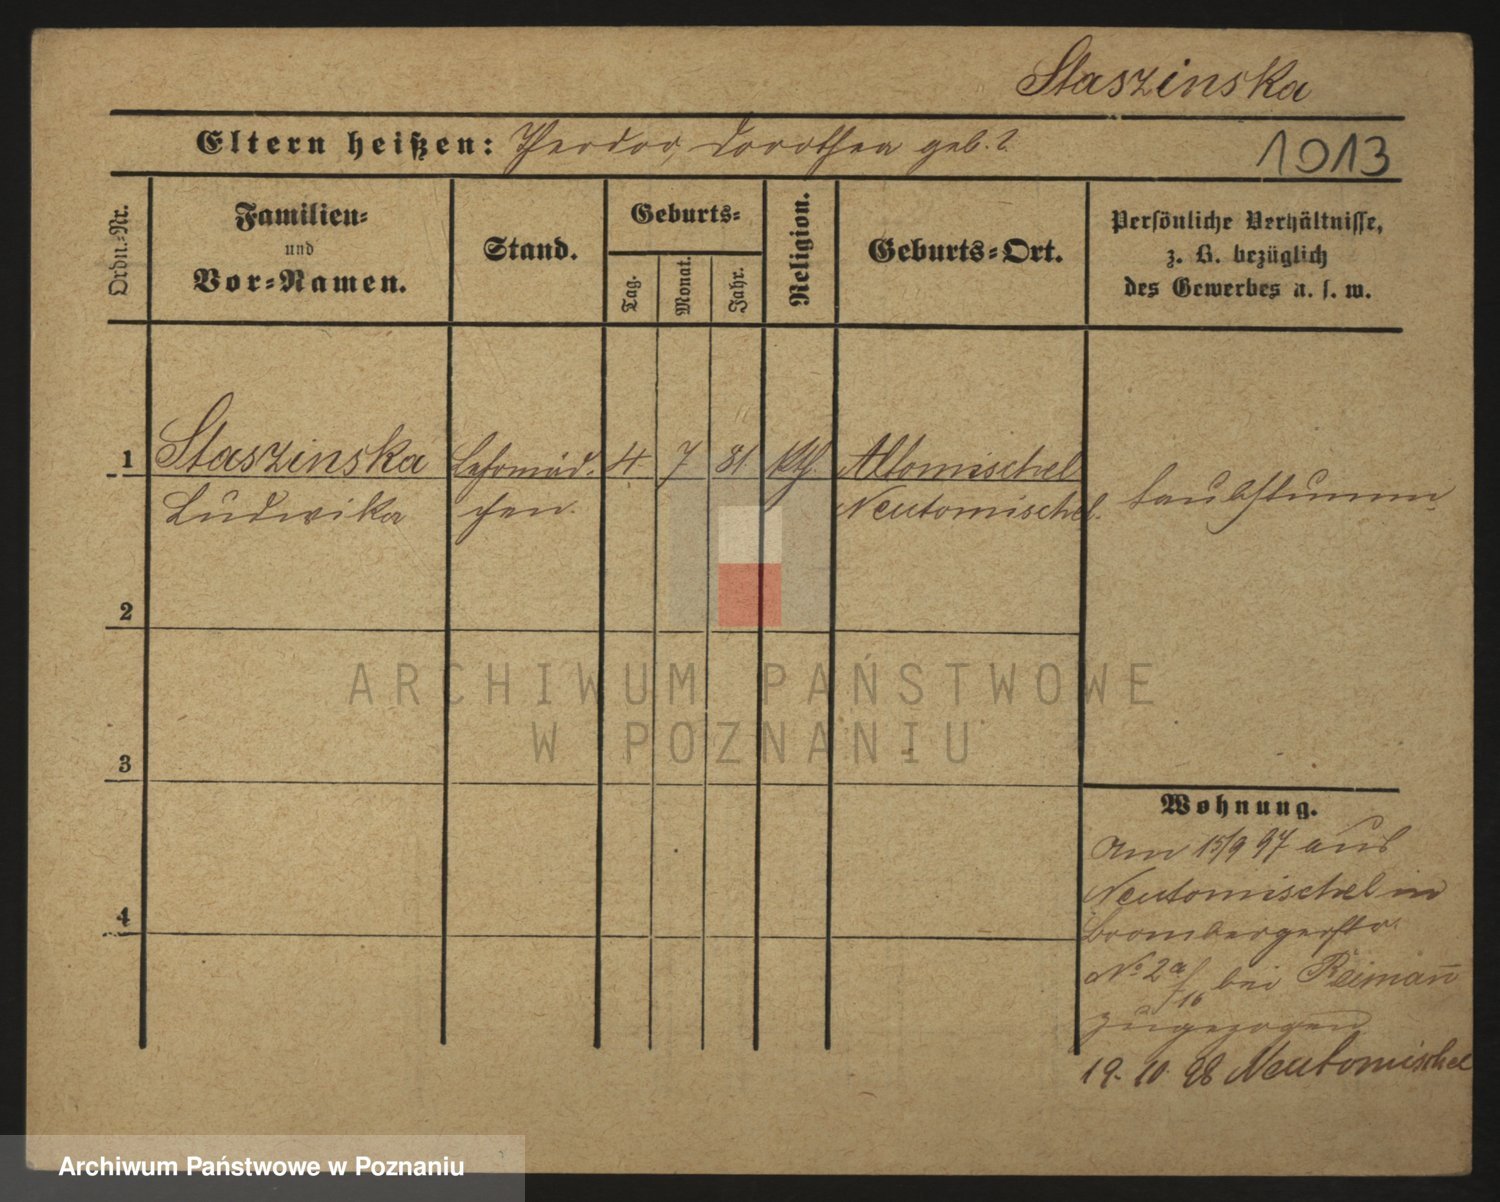 Staszinska
Eltern heißen: Theodor, Dorothea geb. ?
1013
Ordn.-Nr.
Familien-
und
Vor-Namen.
Stand.
Geburts-
Tag.
Monat.
Jahr.
Religion.
Geburts-Ort.
Persönliche Verhältnisse,
z. B. bezüglich
des Gewerbes u. s. w.
1 Staszinska Lehrmäd- 4. 7 81. kth. Altomischel
Ludwika chen. Neutomischel. taubstumm
2
3
4
Wohnung.
Am 15/9 97 aus
Neutomischel in
Brombergerstr.
No 2a/16 bei Reimann
zugezogen
19. 10. 98 Neutomischel
ARCHIWUM PAŃSTWOWE
W POZNANIU
Archiwum Państwowe w Poznaniu